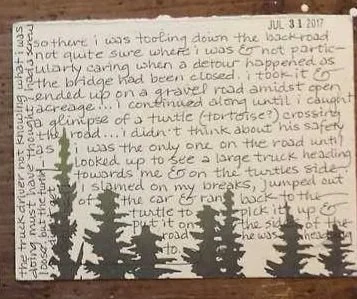 JUL 31 2017
so there i was tooling down the backroad
not quite sure where i was & not partic-
ularly caring when a detour happened as
the bridge had been closed. i took it &
ended up on a gravel road amidst open
acreage... i continued along until i caught
a glimpse of a turtle (tortoise?) crossing
the road... i didn't think about his safety
as i was the only one on the road until i
looked up to see a large truck heading
towards me & on the turtles side
i slamed on my breaks, jumped out
of the car & ran back to the
turtle to pick it up &
put it on the side of the
road he was heading
to.
the truck driver not knowing what i was
doing must have thought i had a screw
loose, but the turtle